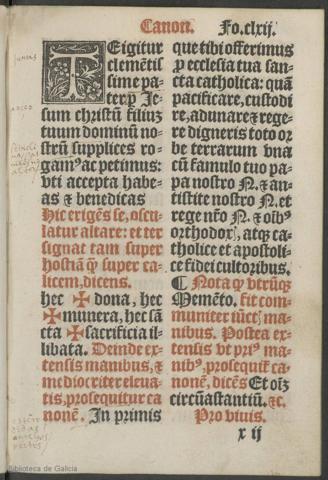 Canon. Fo.clxij.
TEigitur
clemẽtis
sime pa-
ter p̱ Je
sum christũ filiuʒ
tuum dominũ no-
strũ supplices ro-
gamꝰ ac petimus:
vti accepta habe-
as ⁊ benedicas
Hic erigẽs se, oscu
latur altare: et ter
signat tam super
hostiã q̃ super ca-
licem, dicens.
hec ✠ dona, hec
✠ munera, hec sã
cta ✠ sacrificia il-
libata. Deinde ex-
tensis manibus, ⁊
mediocriter eleua-
tis, prosequitur ca
nonẽ. In primis
que tibi offerimus
p̱ ecclesia tua san-
cta catholica: quã
pacificare, custodi
re, adunare ⁊ rege-
re digneris toto or
be terrarum vna
cũ famulo tuo pa-
pa nostro N. ⁊ an-
tistite nostro N. et
rege nr̃o N. ⁊ oĩbꝰ
orthodoxꝭ, atqʒ ca-
tholice et apostoli-
ce fidei cultoribus.
¶ Nota ꝙ vtrũqʒ
Memẽto. fit com-
muniter iũctꝭ ma-
nibus. Postea ex-
tensis vt priꝰ ma-
nibꝰ, prosequit̃ ca-
nonẽ, dicẽs Et oĩʒ
circũstantiũ. ⁊c.
Pro viuis.
x ij
Biblioteca de Galicia